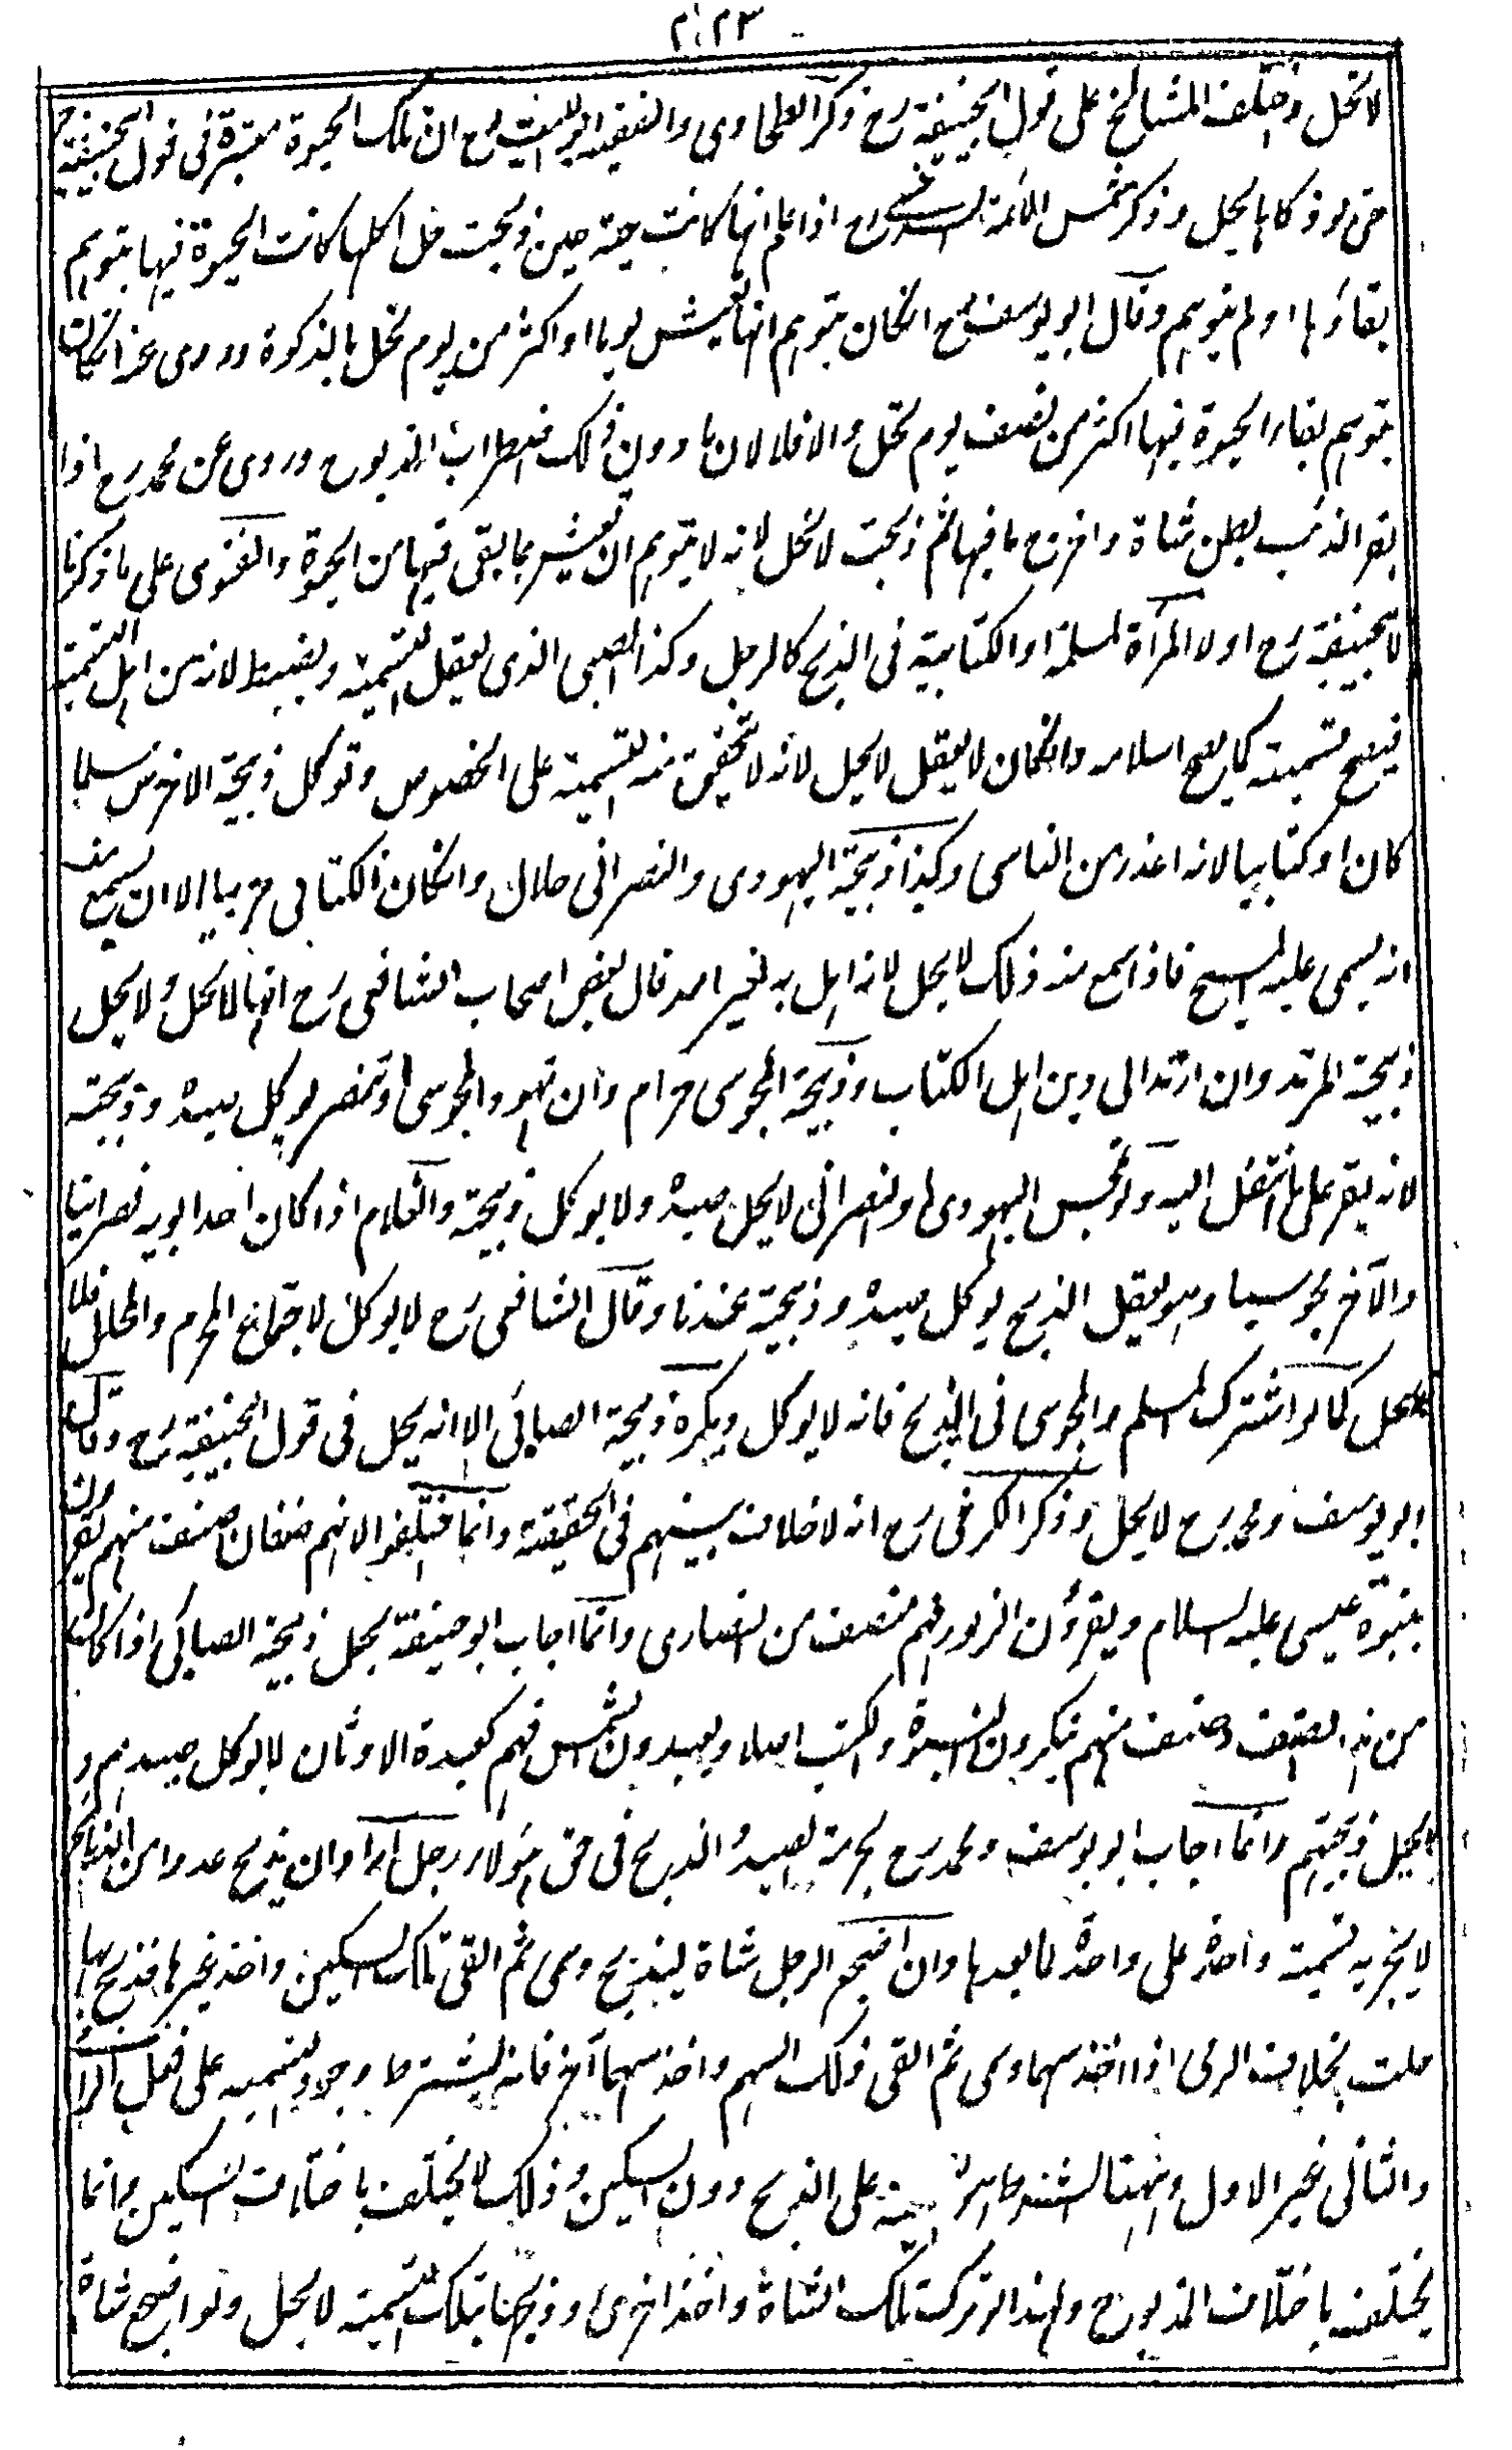 ٢٠٢٣
لا تحل واختلف المشايخ على قول ابيحنيفة رح وذكر الطحاوى والفقيه ابو الليث رح ان تلك الحيوة معتبرة فى قول ابيحنيفة رح
حتى لو ذكاها يحل وذكر شمس الائمة السرخسى رح اذا علم انها كانت حية حين ذبحت حل اكلها كانت الحيوة فيها يتوهم
بقاؤها اولم يتوهم وقال ابو يوسف رح انكان يتوهم انها تعيش يوما او اكثر من يوم تحل بالذكوة وروى عنه انكان
يتوهم بقاء الحيوة فيها اكثر من نصف يوم تحل والا فلا لان ما دون ذلك اضطراب المذبوح وروى عن محمد رح اذا
بقر الذئب بطن شاة واخرج ما فيها ثم ذبحت لا تحل لانه لا يتوهم ان تعيش بما بقى فيها من الحيوة والفتوى على ما ذكرنا
لابيحنيفة رح اولا المرأة المسلمة او الكتابية فى الذبح كالرجل وكذا الصبى الذى يعقل التسمية ويضبط لانه من اهل التسمية
فيصح تسميته كما يصح اسلامه وانكان لا يعقل لا يحل لانه لا يتحقق منه التسمية على الخصوص وتوكل ذبيحة الاخرس مسلما
كان او كتابيا لانه اعذر من الناسى وكذا ذبيحة اليهودى والنصرانى حلال وانكان الكتابى حربيا الا ان يسمع منه
انه يسمى عليه المسيح فاذا سمع منه ذلك لا يحل لانه اهل به لغير الله وقال بعض اصحاب الشافعى رح انها لا تحل ولا يحل
ذبيحة المرتد وان ارتد الى دين اهل الكتاب وذبيحة المجوسى حرام وان تهود المجوسى او تنصر يوكل صيده وذبيحته
لانه يقر على ما انتقل اليه ولو تمجس اليهودى او النصرانى لا يحل صيده ولا يوكل ذبيحته والغلام اذا كان احد ابويه نصرانيا
والآخر مجوسيا وهو يعقل الذبح يوكل صيده وذبيحته عندنا وقال الشافعى رح لا يوكل لاجتماع المحرم والمحلل فلا
يحل كما لو اشترك المسلم والمجوسى فى الذبح فانه لا يوكل ويكره ذبيحة الصابئ الا انه يحل فى قول ابيحنيفة رح وقال
ابو يوسف ومحمد رح لا يحل وذكر الكرخى رح انه لا خلاف بينهم فى الحقيقة وانما اختلفوا لانهم صنفان صنف منهم يقرون
بنبوة عيسى عليه السلام ويقرؤن الزبور فهم صنف من النصارى وانما اجاب ابو حنيفة بحل ذبيحة الصابئ اذا كان
من هذا الصنف وصنف منهم ينكرون النبوة والكتب اصلا ويعبدون الشمس فهم كعبدة الاوثان لا يوكل صيدهم و
لا يحل ذبيحتهم وانما اجاب ابو يوسف ومحمد رح بحرمة الصيد والذبح فى حق هؤلاء رجل اراد ان يذبح عددا من الذبائح
لا يجزيه تسمية واحدة على واحدة لما بعدها وان اضجع الرجل شاة ليذبح وسمى ثم القى تلك السكين واخذ غيرها فذبح بها
حلت بخلاف الرمى اذا اخذ سهما وسمى ثم القى ذلك السهم واخذ سهما آخر فانه يشترط وجود التسمية على فعل الرمى
والثانى غير الاول وههنا الشرط التسمية على الذبح دون السكين وذلك لا يختلف باختلاف السكين وانما
يختلف باختلاف المذبوح ولهذا لو تركت تلك الشاة واخذ اخرى وذبحها بتلك التسمية لا يحل ولو اضجع شاة